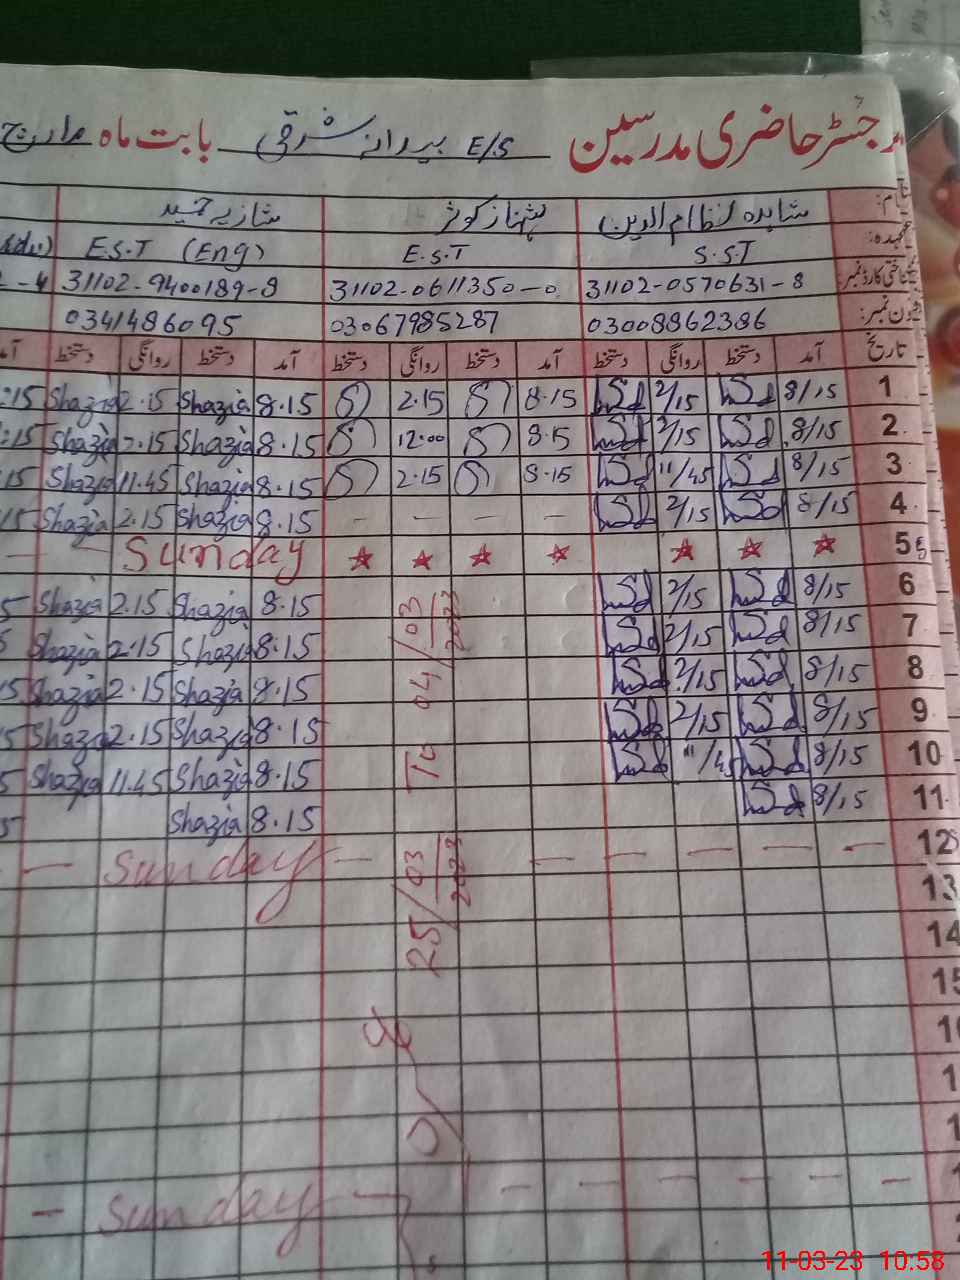 رجسٹر حاضری مدرسین E/S بیروانہ شرقی بابت ماہ مارچ
نام: شاہدہ نظام الدین شہناز کوثر شازیہ حمید
عہدہ: S.S.T E.S.T E.S.T (Eng)
شناختی کارڈ نمبر: 31102-0570631-8 31102-0611350-0 31102-9400189-8 -4
فون نمبر: 03008862386 03067985287 0341486095
تاریخ آمد دستخط روانگی دستخط آمد دستخط روانگی دستخط آمد دستخط روانگی دستخط
1 8/15 2/15 8.15 2.15 8.15 Shazia 2.15 Shazia :15
2 8/15 2/15 8.15 12:00 8.15 Shazia 2.15 Shazia :15
3 8/15 11/45 8.15 2.15 8.15 Shazia 11.45 Shazia 15
4 8/15 2/15 - - - - 8.15 Shazia 2.15 Shazia 15
5 Sunday
6 8/15 2/15 8.15 Shazia 2.15 Shazia 5
7 8/15 2/15 8.15 Shazia 2.15 Shazia 5
8 8/15 2/15 8.15 Shazia 2.15 Shazia 15
9 8/15 2/15 8.15 Shazia 2.15 Shazia 5
10 8/15 11/45 8.15 Shazia 11.45 Shazia 5
11 8/15 8.15 Shazia 5
12 - - - - - - Sunday -
13
14
15
04/03/2023
To
25/03/2023
- - - - - - Sunday -
11-03-23 10:58